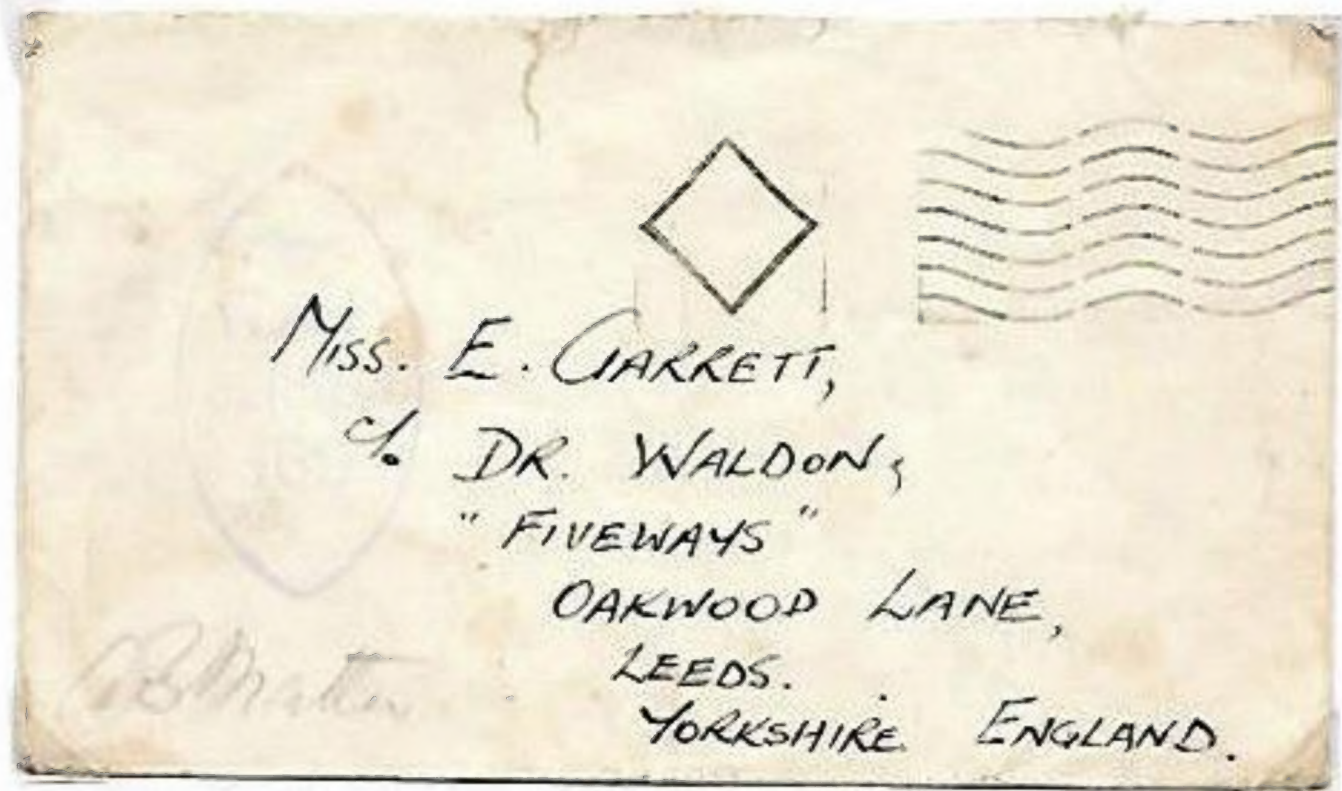 MISS. E. GARRETT,
c/o DR. WALDON,
"FIVEWAYS"
OAKWOOD LANE,
LEEDS.
YORKSHIRE ENGLAND.